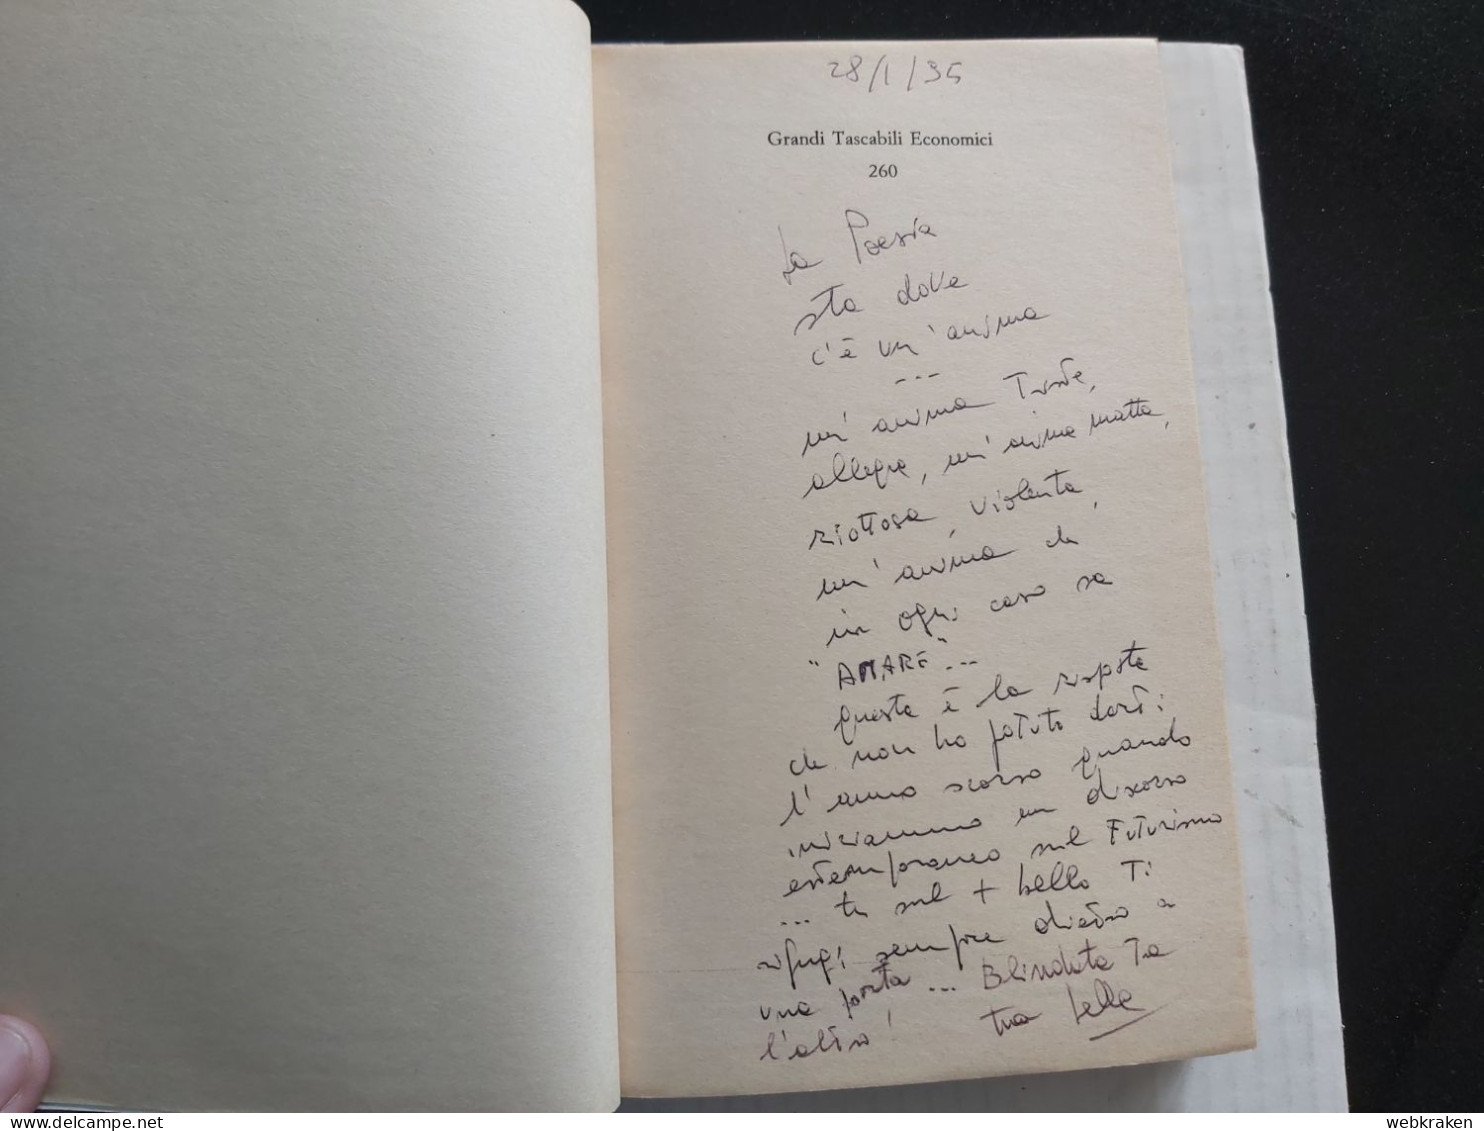 28/1/95
Grandi Tascabili Economici
260
La Poesia
sta dove
c'è un'anima
---
un'anima Triste,
allegra, un'anima matta,
riottosa, violenta,
un'anima che
in ogni caso sa
"AMARE"...
questa è la risposta
che non ho potuto darti:
l'anno scorso quando
iniziammo un discorso
estemporaneo sul Futurismo
... tu sul + bello Ti
rifugi sempre dietro a
una porta ... Blindata Tra
l'altro! tua
webkraken